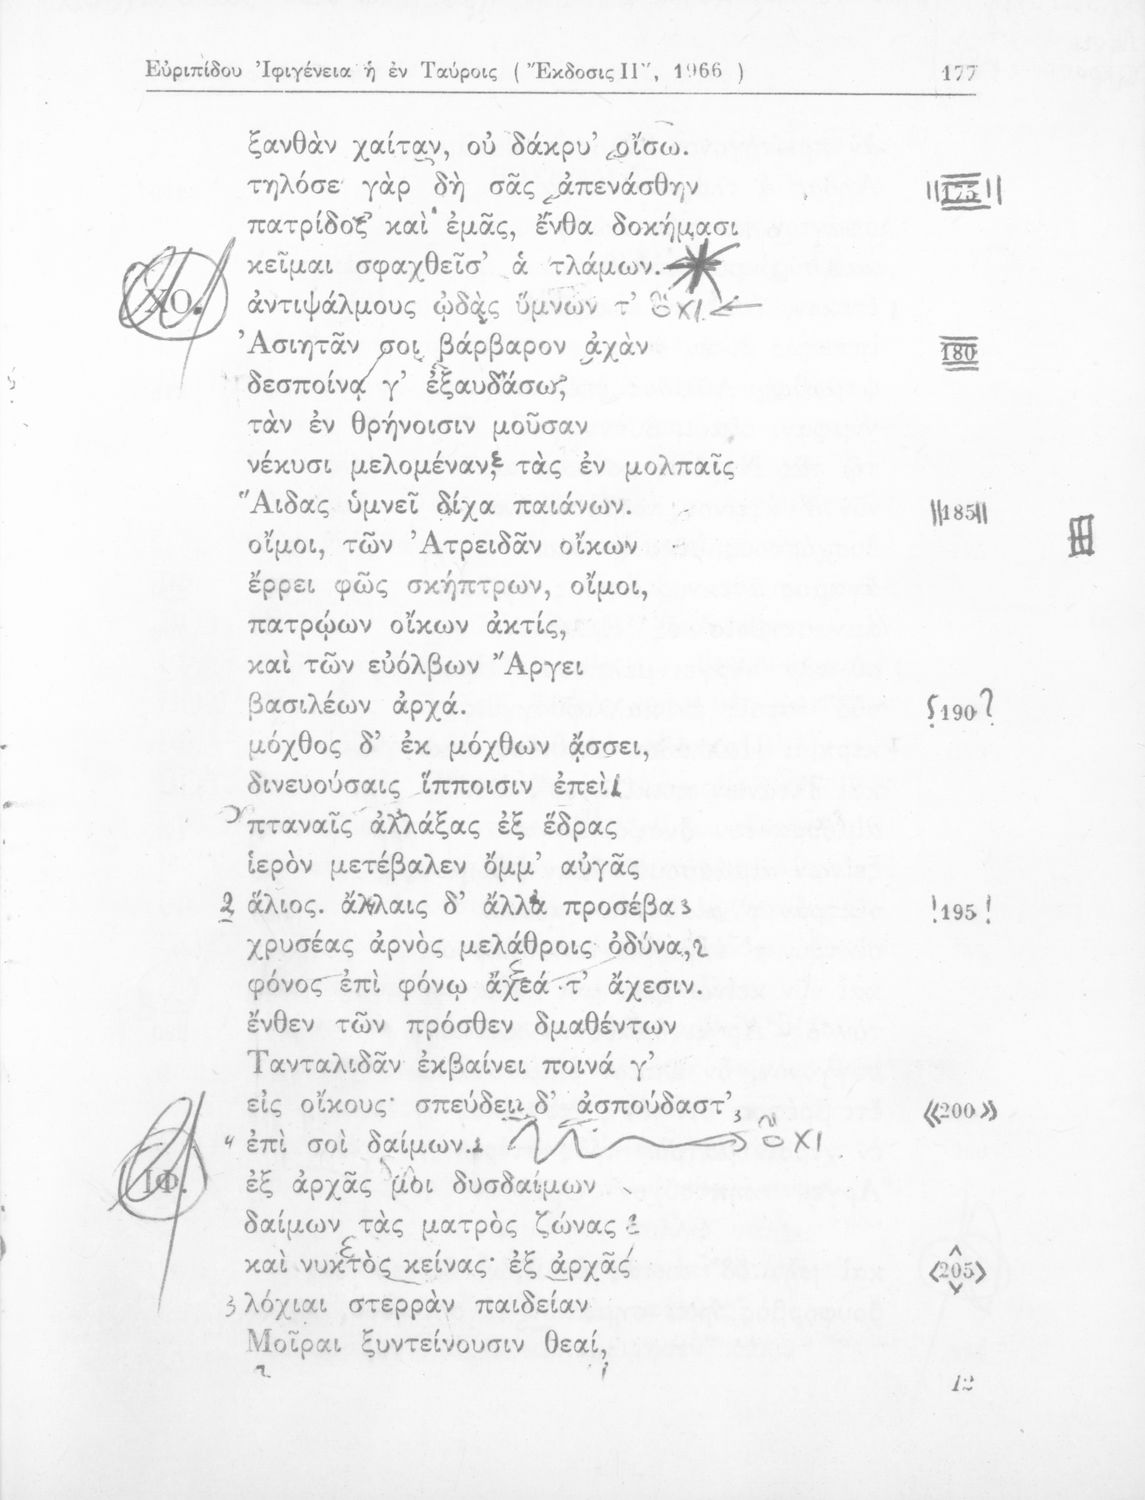 Εὐριπίδου Ἰφιγένεια ἡ ἐν Ταύροις ( Ἔκδοσις 1966 ) 177
ξανθὰν χαίταν, οὐ δάκρυ' οἴσω.
τηλόσε γὰρ δὴ σᾶς ἀπενάσθην 175
πατρίδος καὶ ἐμᾶς, ἔνθα δοκήμασι
κεῖμαι σφαχθεῖσ' ἁ τλάμων.
ΧΟ. ἀντιψάλμους ᾠδὰς ὕμνων τ' ΟΧΙ
Ἀσιητᾶν σοι βάρβαρον ἀχὰν 180
δεσποίνᾳ γ' ἐξαυδάσω,
τὰν ἐν θρήνοισιν μοῦσαν
νέκυσι μελομέναν, τὰς ἐν μολπαῖς
Ἅιδας ὑμνεῖ δίχα παιάνων. 185
οἴμοι, τῶν Ἀτρειδᾶν οἴκων
ἔρρει φῶς σκήπτρων, οἴμοι,
πατρῴων οἴκων ἀκτίς,
καὶ τῶν εὐόλβων Ἄργει
βασιλέων ἀρχά. 190
μόχθος δ' ἐκ μόχθων ᾄσσει,
δινευούσαις ἵπποισιν ἐπεὶ
πταναῖς ἀλλάξας ἐξ ἕδρας
ἱερὸν μετέβαλεν ὄμμ' αὐγᾶς
2 ἅλιος. ἄλλαις δ' ἄλλα προσέβα 3 195
χρυσέας ἀρνὸς μελάθροις ὀδύνα, 2
φόνος ἐπὶ φόνῳ ἄχεά τ' ἄχεσιν.
ἔνθεν τῶν πρόσθεν δμαθέντων
Τανταλιδᾶν ἐκβαίνει ποινά γ'
εἰς οἴκους· σπεύδει δ' ἀσπούδαστ' 3 «200»
4 ἐπὶ σοὶ δαίμων. 1 ΟΧΙ
ΙΦ. ἐξ ἀρχᾶς μοι δυσδαίμων
δαίμων τᾶς ματρὸς ζώνας
καὶ νυκτὸς κείνας· ἐξ ἀρχᾶς <205>
3 λόχιαι στερρὰν παιδείαν
Μοῖραι ξυντείνουσιν θεαί,
12